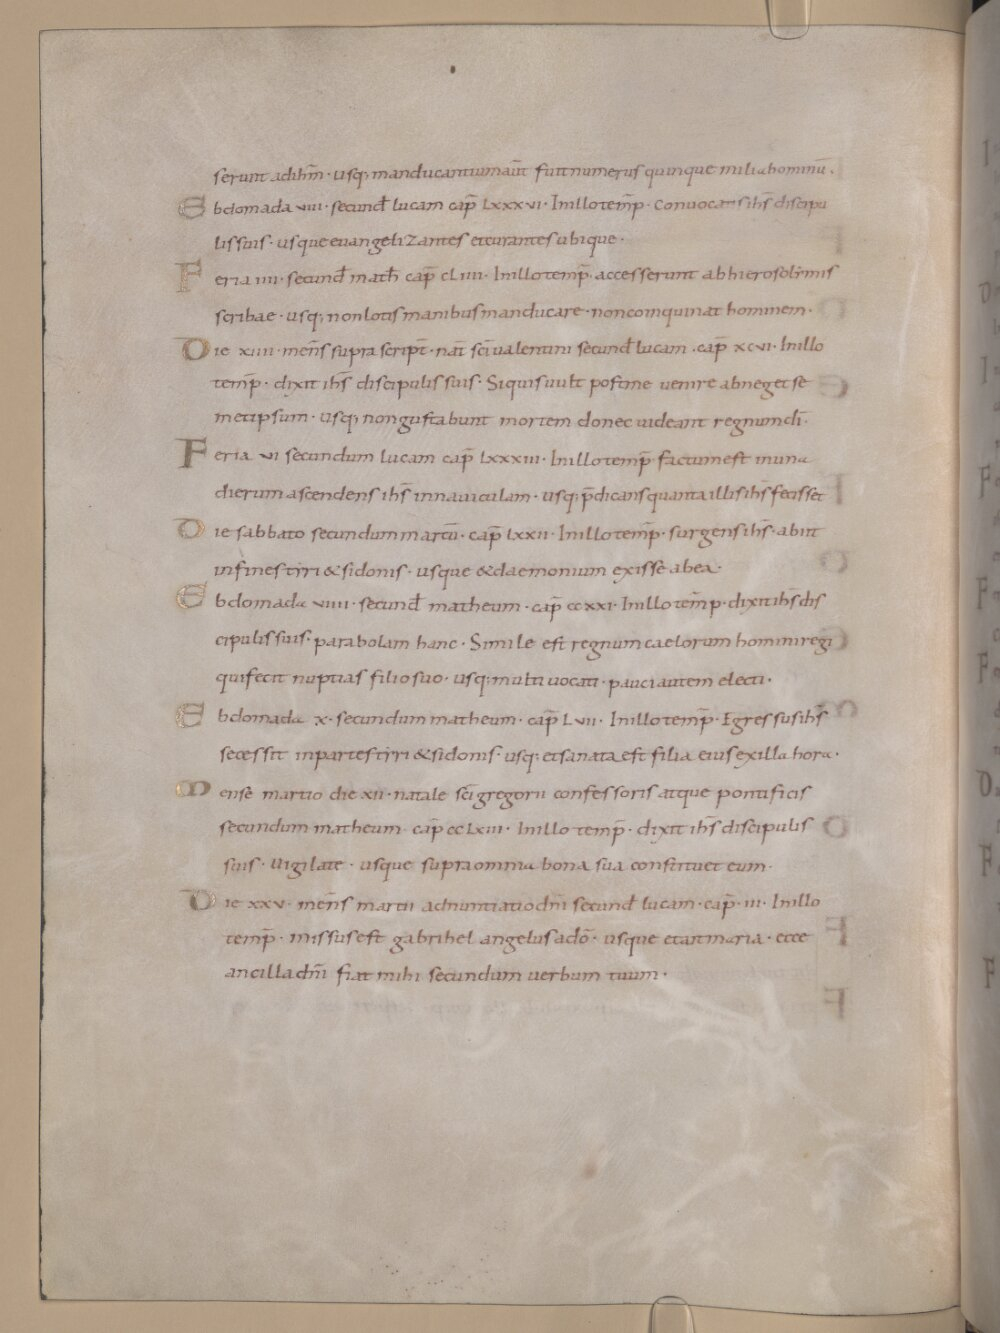 serunt ad ihm̄ · usq; manducantium aūt fuit numerus quinque milia hominū ·
Ebdomada viii · secund̄ lucam cap̄ Lxxxvi · In illo temp̄ · convocatis ihs̄ discipu
lis suis · usque euangelizantes et curantes ubique ·
Feria iiii · secund̄ math̄ cap̄ cLiiii · In illo temp̄ · accesserunt ab hierosolimis
scribae · usq; non lotis manibus manducare · non coinquinat hominem ·
Die xiiii · mens̄ supra script̄ · nat̄ sci̅ ualentini secund̄ lucam · cap̄ xcvi · In illo
temp̄ · dixit ihs̄ discipulis suis · Si quis uult post me uenire abneget se
met ipsum · usq; non gustabunt mortem donec uideant regnum dī ·
Feria vi secundum lucam cap̄ Lxxxiii · In illo temp̄ factum est in una
dierum ascendens ihs̄ in nauiculam · usq; p̄dicans quanta illis ihs̄ fecisset
Die sabbato secundum marcū · cap̄ Lxxii · In illo temp̄ · surgens ihs̄ · abiit
in fines tyri & sidonis · usque & daemonium exisse ab ea ·
Ebdomada viiii · secund̄ matheum · cap̄ ccxxi · In illo tem̄p · dixit ihs̄ dis
cipulis suis · parabolam hanc · Simile est regnum caelorum homini regi
qui fecit nuptias filio suo · usq; multi uocati · pauci autem electi ·
Ebdomada x · secundum matheum · cap̄ Lvii · In illo temp̄ · Egressus ihs̄
secessit in partes tyri & sidonis · usq; et sanata est filia eius ex illa hora ·
Mense martio die xii · natale sci̅ gregorii confessoris atque pontificis
secundum matheum · cap̄ ccLxiii · In illo temp̄ · dixit ihs̄ discipulis
suis · Vigilate · usque supra omnia bona sua constituet eum ·
Die xxv · mens̄ martii adnuntiatio dnī secund̄ lucam · cap̄ · iii · In illo
temp̄ · missus est gabrihel angelus a dō · usque et ait maria · ecce
ancilla dnī fiat mihi secundum uerbum tuum ·